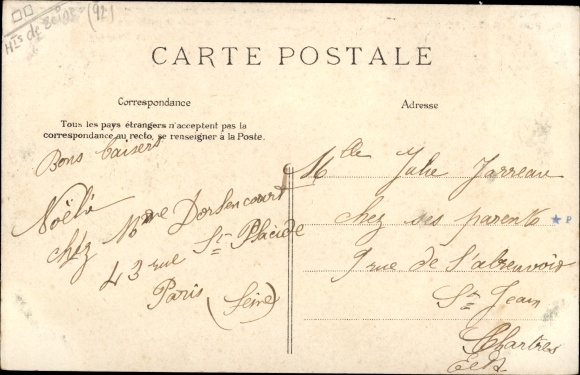 Hts de Seine (92)
CARTE POSTALE
Correspondance
Tous les pays étrangers n'acceptent pas la
correspondance au recto, se renseigner à la Poste.
Bons baisers
Noëlie
chez Mme Dorlencourt
43 rue St Placide
Paris (Seine)
Adresse
Mlle Julie Jarreau
chez ses parents
9 rue de l'abreuvoir
St Jean
Chartres
E et L
P